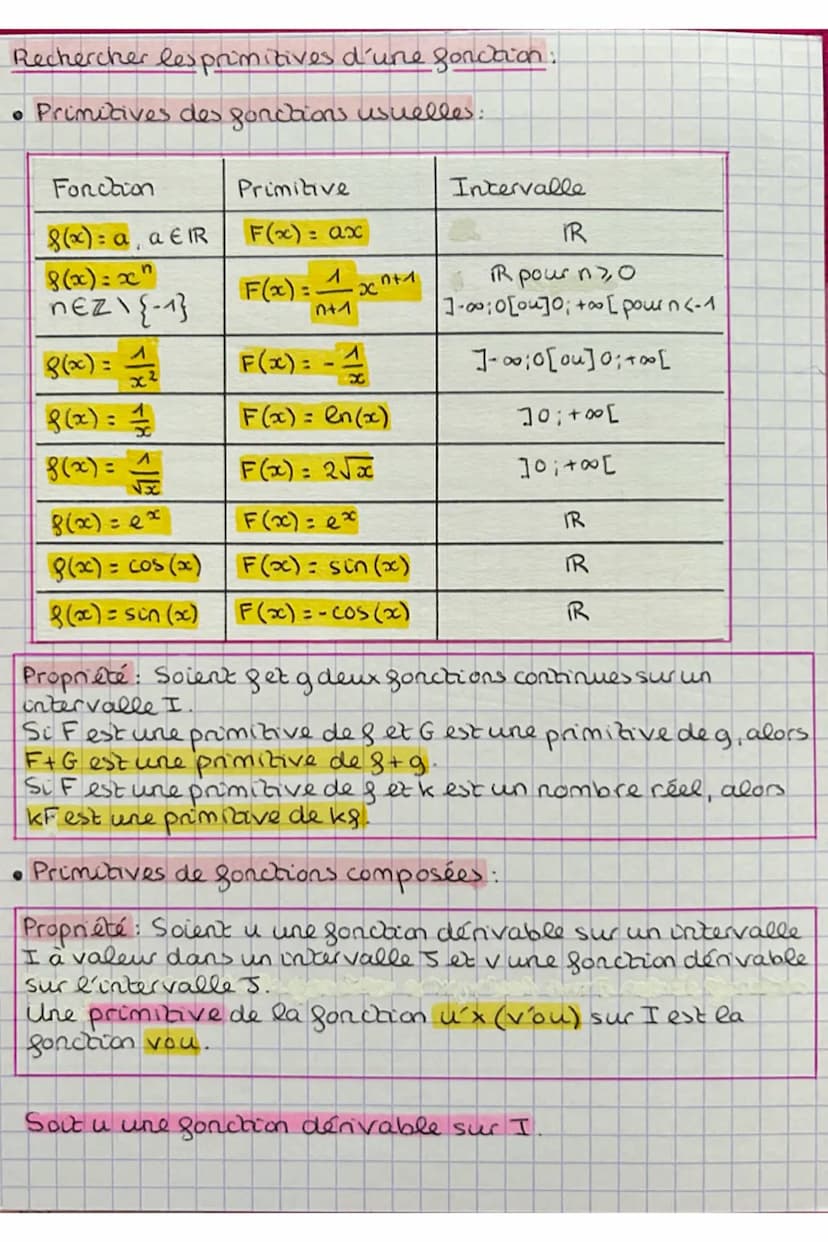 Rechercher les primitives d'une fonction :
• Primitives des fonctions usuelles :
Fonction Primitive Intervalle
f(x) = a, a ∈ ℝ F(x) = ax ℝ
f(x) = xⁿ n ∈ ℤ \ {-1} F(x) = 1/(n+1) xⁿ⁺¹ ℝ pour n ⩾ 0 ]-∞;0[ ou ]0;+∞[ pour n < -1
f(x) = 1/x² F(x) = - 1/x ]-∞;0[ ou ]0;+∞[
f(x) = 1/x F(x) = ln(x) ]0;+∞[
f(x) = 1/√x F(x) = 2√x ]0;+∞[
f(x) = eˣ F(x) = eˣ ℝ
f(x) = cos(x) F(x) = sin(x) ℝ
f(x) = sin(x) F(x) = -cos(x) ℝ
Propriété : Soient f et g deux fonctions continues sur un
intervalle I.
Si F est une primitive de f et G est une primitive de g, alors
F+G est une primitive de f+g.
Si F est une primitive de f et k est un nombre réel, alors
kF est une primitive de kf.
• Primitives de fonctions composées :
Propriété : Soient u une fonction dérivable sur un intervalle
I à valeur dans un intervalle J et v une fonction dérivable
sur l'intervalle J.
Une primitive de la fonction u'×(v'ou) sur I est la
fonction vou.
Soit u une fonction dérivable sur I.